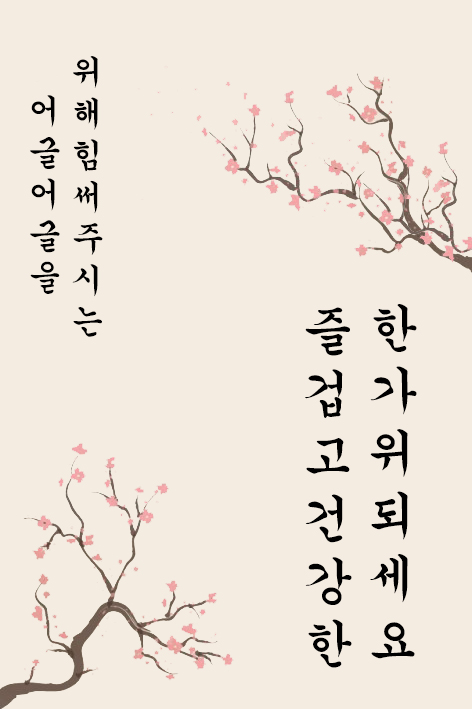 어글어글을
위해힘써주시는
즐겁고건강한
한가위되세요